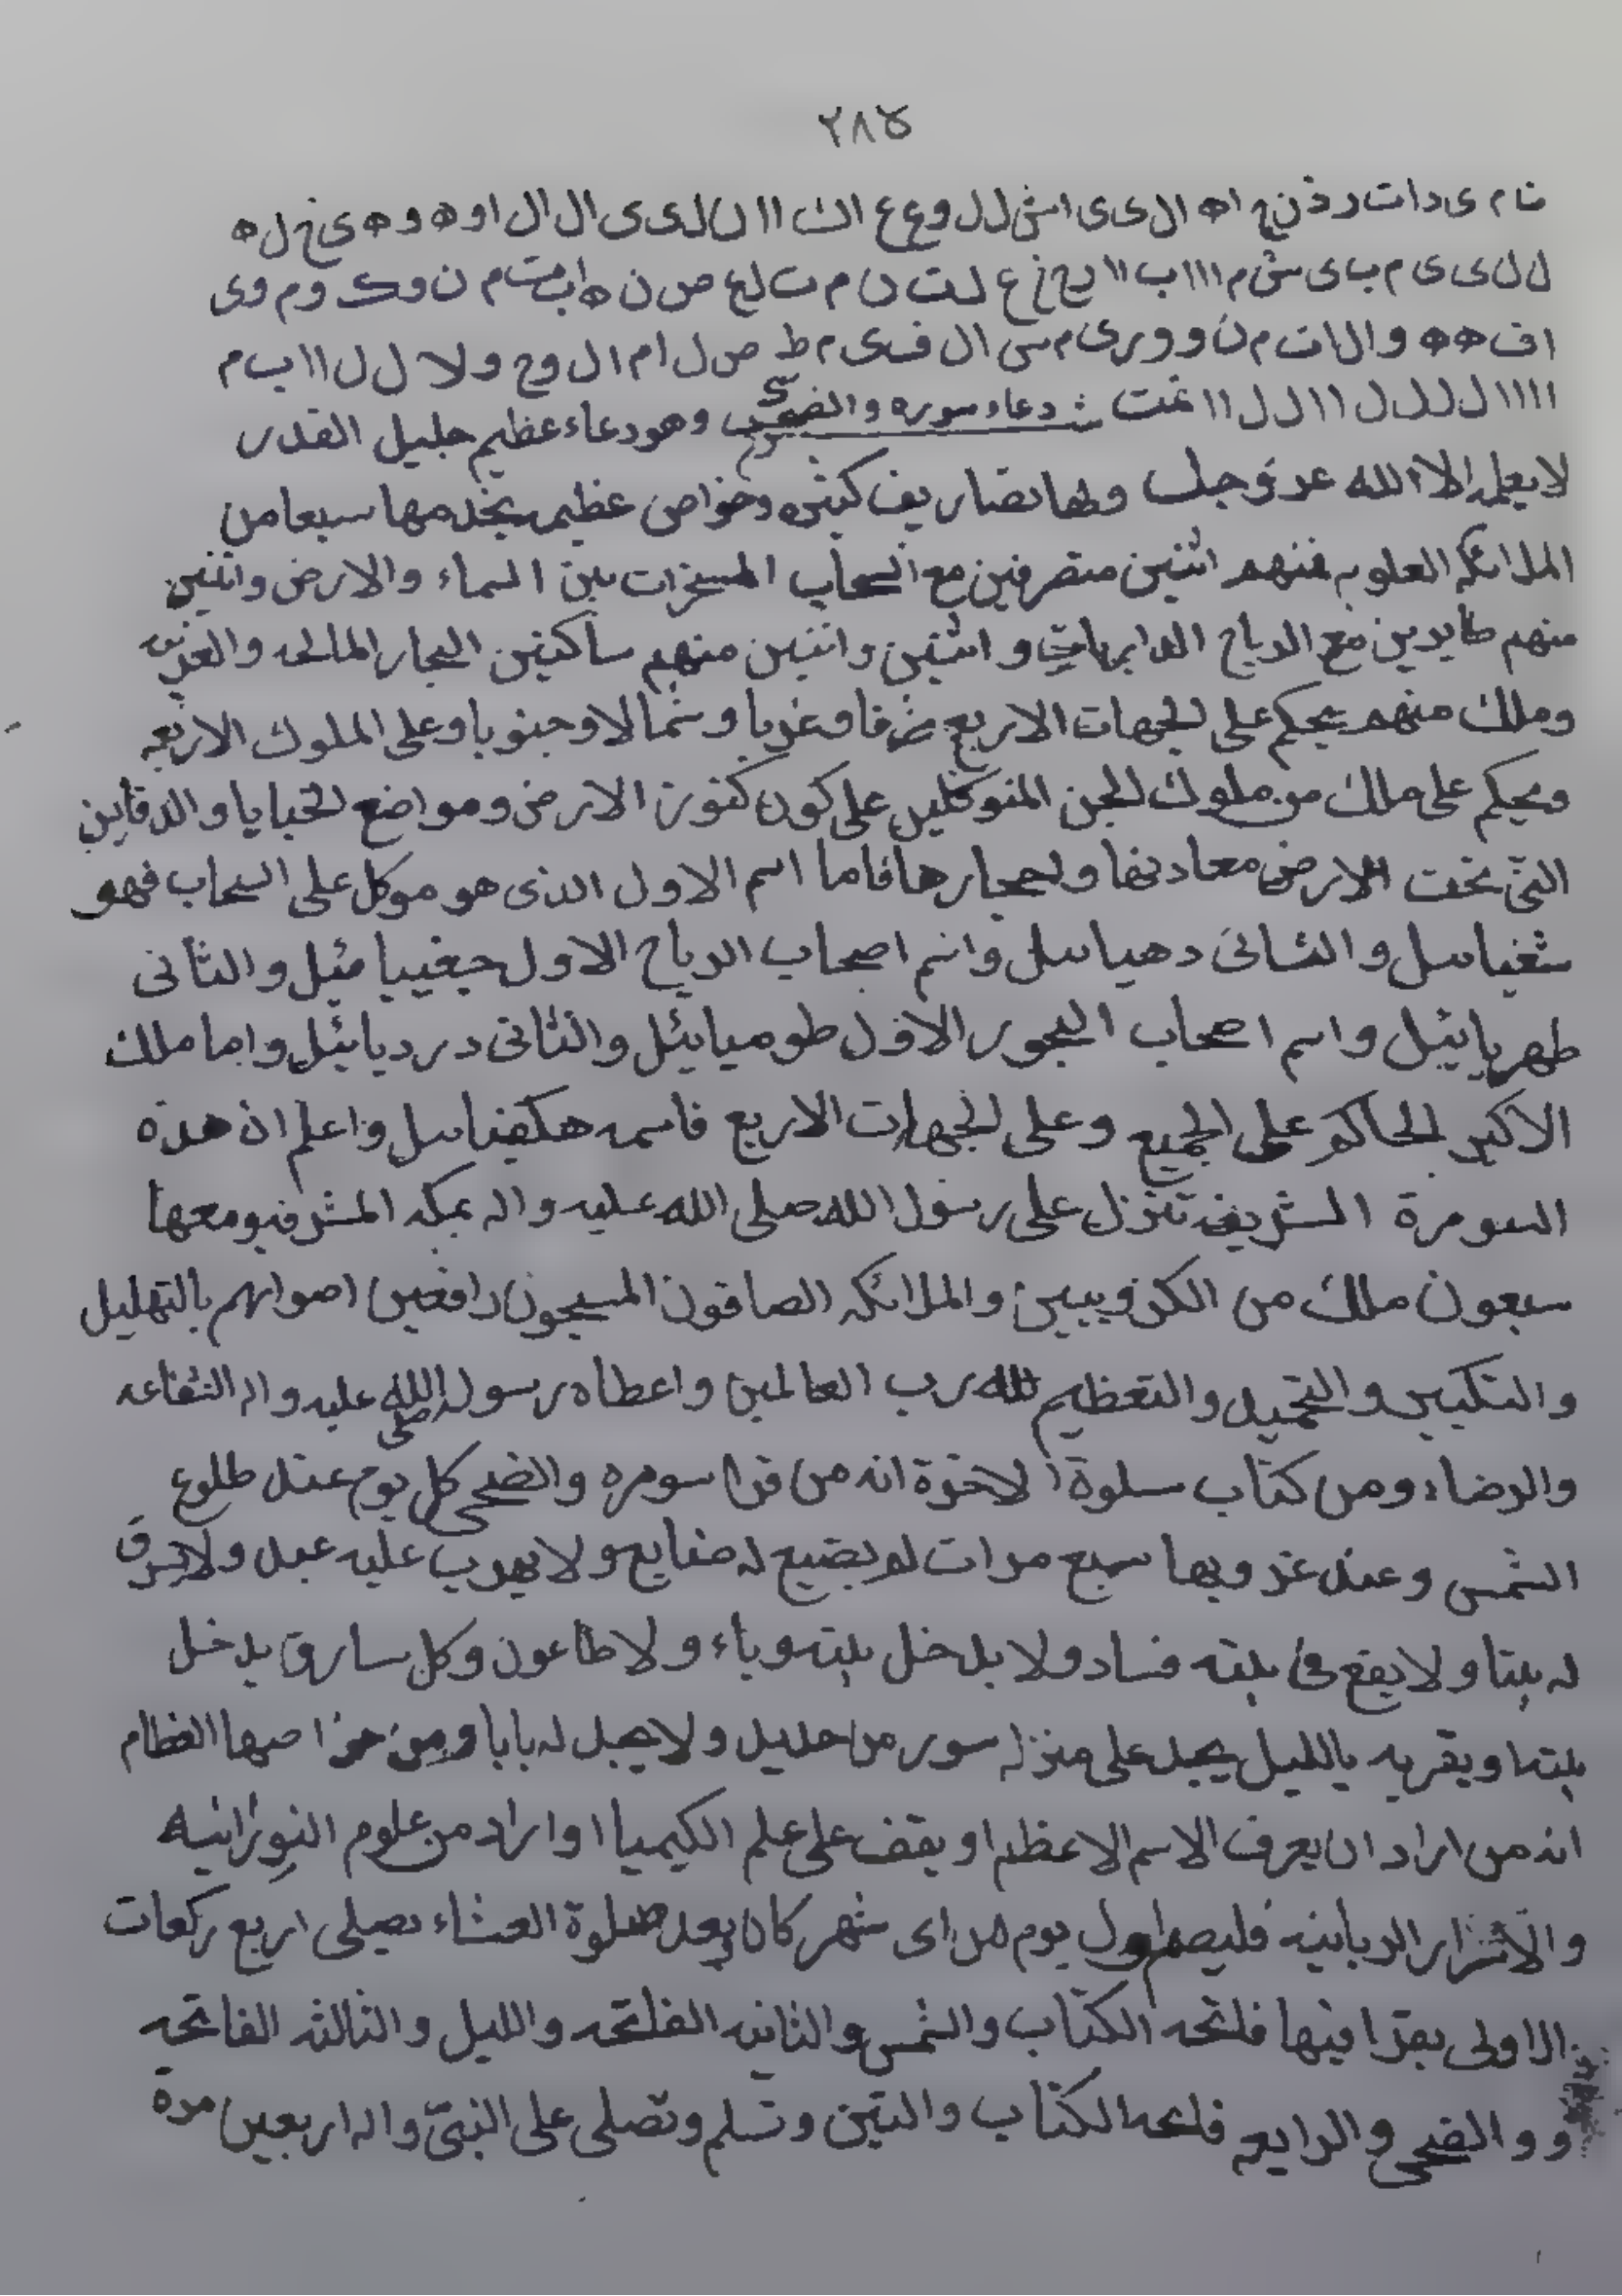 ٢٨٥
ن ا م ى د ا ت ر د ن ج ا ه ا ل ى ى ا ش ل ل و ع ع ا ك ا ا ن ل ى ى ا ل ا ل ا و ه و ه ى خ ل ه
ل ل ى ى م ب ى ش م ا ا ا ب ا ا
ا ف ه ه و ا ل ا ت م ن و و ر ى م س ا ل ف ى م ط ص ل ا م ا ل و ج و ل ا ل ل ا ا ب م
ا ا ا ا ل ل ل ل ا ا ل ل ا ا تمت دعاء سوره والضحى وهو دعاء عظيم جليل القدر
لا يعلمه الا الله عز وجل ولها تصاريف كثيره وخواص عظيمه يخدمها سبعا من
الملائكه العلويه فمنهم اثنين متصرفين مع السحاب المسخرات بين السماء والارض واثنين
منهم طايرين مع الرياح الدايرات واثنين واثنين منهم ساكنين البحار المالحه والعذبه
وملك منهم يحكم على الجهات الاربع شرقا وغربا وشمالا وجنوبا وعلى الملوك الاربعه
ويحكم على ملك من ملوك الجن المتوكلين على كون كنوز الارض ومواضع الخبايا والدفاين
التى تحت الارض معادنها واحجارها فاما اسم الاول الذى هو موكل على السحاب فهو
شغياىىل والثانى دهياىىل واسم اصحاب الرياح الاول جغييائيل والثانى
طهريائيل واسم اصحاب البحور الاول طوميائيل والثانى دردبائيل واما ملك
الاكبر الحاكم على الجميع وعلى الجهات الاربع فاسمه هكفياىىل واعلم ان هذه
السورة الشريفه تنزل على رسول الله صلى الله عليه واله بمكه المشرفه ومعها
سبعون ملك من الكروبيين والملائكه الصافون المسبحون رافعين اصواتهم بالتهليل
والتكبير والتحميد والتعظيم لله رب العالمين واعطاه رسول الله صلى عليه واله الشفاعه
والرضاء ومن كتاب سلوة الاخوة انه من قرا سوره والضحى كل يوم عند طلوع
الشمس وعند غروبها سبع مرات لم يضيع له ضايع ولا يهرب عليه عبد ولا يسرق
له بيتا ولا يقع فى بيته فساد ولا يدخل بيته وباء ولا طاعون وكل سارق يدخل
بيته او يقربه بالليل يجد على منزله سور من حديد ولا يجد له بابا ومن خواصها العظام
انه من اراد ان يعرف الاسم الاعظم او يقف على علم الكيميا او اراد من علوم النورانيه
والاسرار الربانيه فليصم اول يوم من اى شهر كان وبعد صلوة العشاء يصلى اربع ركعات
الاولى يقرا فيها فاتحه الكتاب والشمس والثانيه الفاتحه والليل والثالثه الفاتحه
و والضحى والرابعه فاتحه الكتاب والتين وتسلم وتصلى على النبىّ واله اربعين مرة